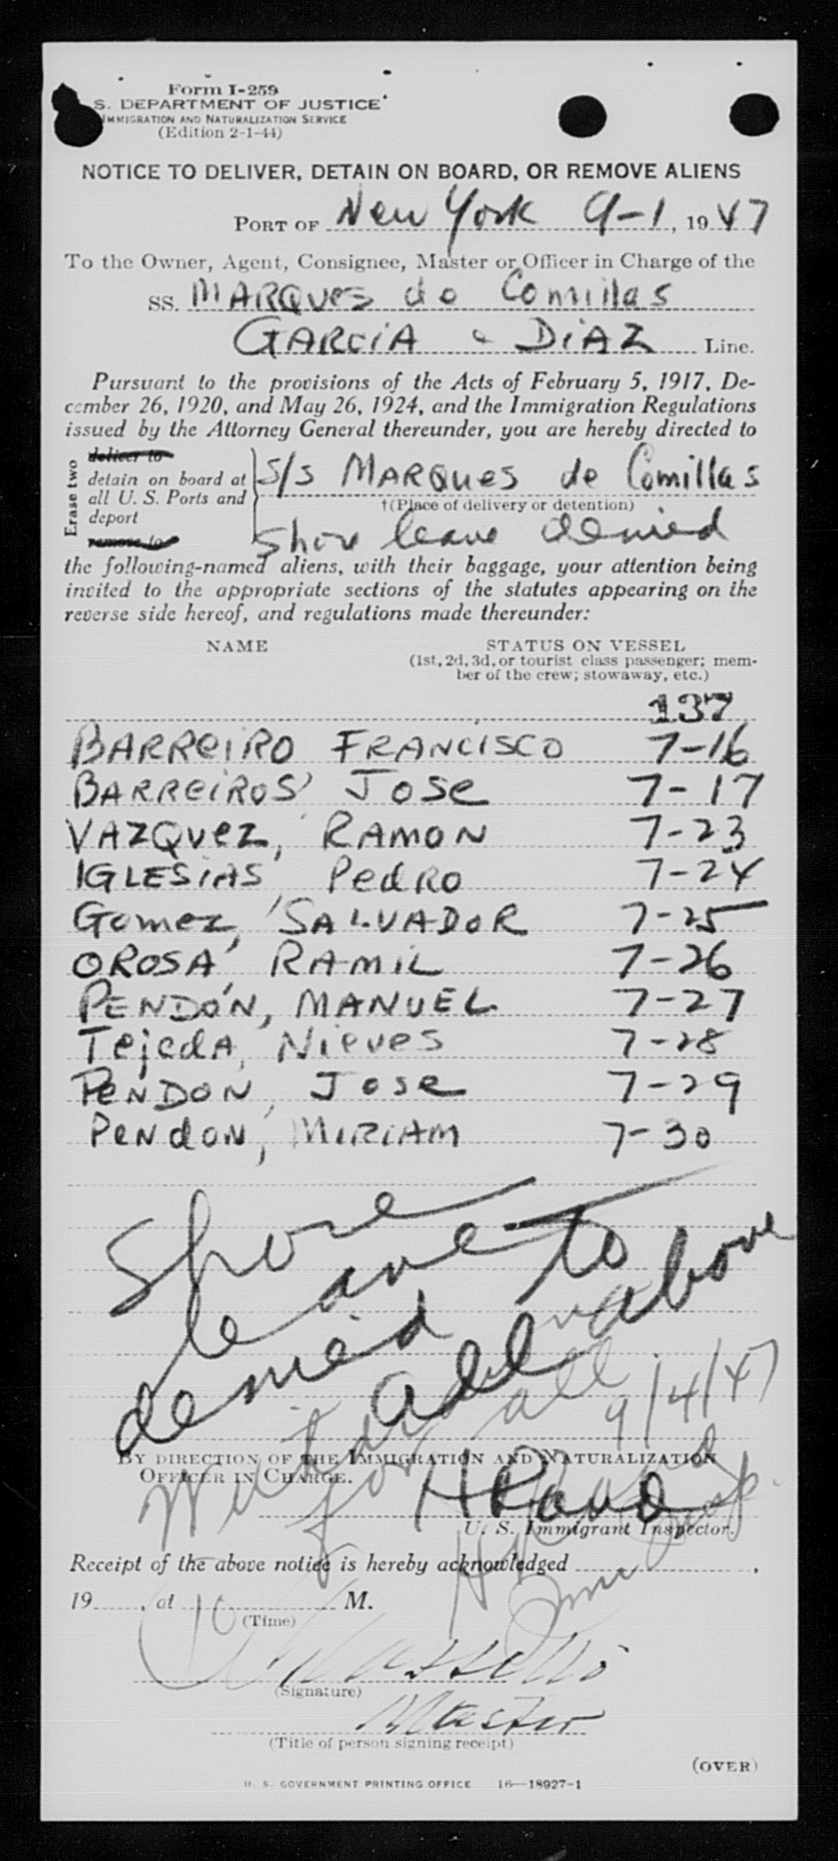 Form I-259
S. DEPARTMENT OF JUSTICE
IMMIGRATION AND NATURALIZATION SERVICE
(Edition 2-1-44)
NOTICE TO DELIVER, DETAIN ON BOARD, OR REMOVE ALIENS
PORT OF New York 9-1, 1947
To the Owner, Agent, Consignee, Master or Officer in Charge of the
SS. MARQUES de Comillas
GARCIA & DIAZ Line.
Pursuant to the provisions of the Acts of February 5, 1917, De-
cember 26, 1920, and May 26, 1924, and the Immigration Regulations
issued by the Attorney General thereunder, you are hereby directed to
Erase two
deliver to
detain on board at
all U. S. Ports and
deport
remove to
S/S MARQUES de Comillas
†(Place of delivery or detention)
Shore leave denied
the following-named aliens, with their baggage, your attention being
invited to the appropriate sections of the statutes appearing on the
reverse side hereof, and regulations made thereunder:
NAME STATUS ON VESSEL
(1st, 2d, 3d, or tourist class passenger; mem-
ber of the crew; stowaway, etc.)
137
BARREIRO FRANCISCO 7-16
BARREIROS, JOSE 7-17
VAZQUEZ, RAMON 7-23
IGLESIAS, PedRO 7-24
Gomez, SALVADOR 7-25
OROSA, RAMIL 7-26
PENDÓN, MANUEL 7-27
TejedA, Nieves 7-28
PENDON, Jose 7-29
PENdON, MIRIAM 7-30
Shore
leave to
denied all above
for all 9/4/47
BY DIRECTION OF THE IMMIGRATION AND NATURALIZATION
OFFICER IN CHARGE.
U. S. Immigrant Inspector.
Receipt of the above notice is hereby acknowledged
19 , at 10 M.
(Time)
(Signature)
Master
(Title of person signing receipt)
(OVER)
U. S. GOVERNMENT PRINTING OFFICE 16—18927-1